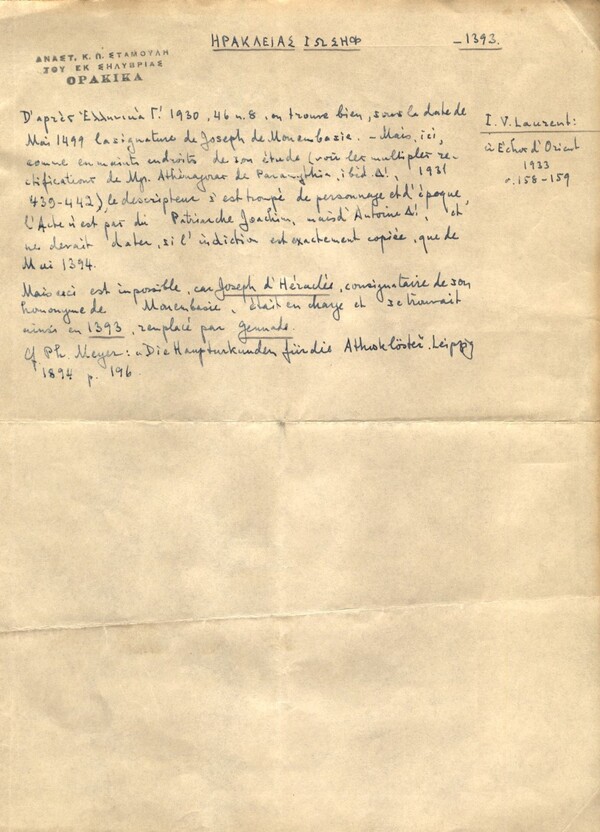 ΗΡΑΚΛΕΙΑΣ ΙΩΣΗΦ
— 1393.
ΑΝΑΣΤ. Κ. Π. ΣΤΑΜΟΥΛΗ
ΤΟΥ ΕΚ ΣΗΛΥΒΡΙΑΣ
ΘΡΑΚΙΚΑ
D'après Ἑλληνικά Γ! 1930, 46 n. 8, on trouve bien, sous la date de
Mai 1499 la signature de Joseph de Monembasie. — Mais, ici,
comme en maints endroits de son étude (voir les multiples re-
ctifications de Mgr. Athénagoras de Paramythia, ibid Δ!, 1931
439-442), le descripteur s'est trompé de personnage et d'époque,
l'Acte n'est pas du Patriarche Joachim, mais d'Antoine Δ!, et
ne devrait dater, si l'indiction est exactement copiée, que de
Mai 1394.
Mais ceci est impossible, car Joseph d'Héraclée, consignataire de son
homonyme de Monembasie, était en charge et se trouvait
ainsi en 1393, remplacé par Gennade.
Cf Ph. Meyer: „Die Haupturkunden für die Athosklöster. Leipzig
1894 p. 196.
I. V. Laurent:
à Échos d'Orient
1933
p. 158-159